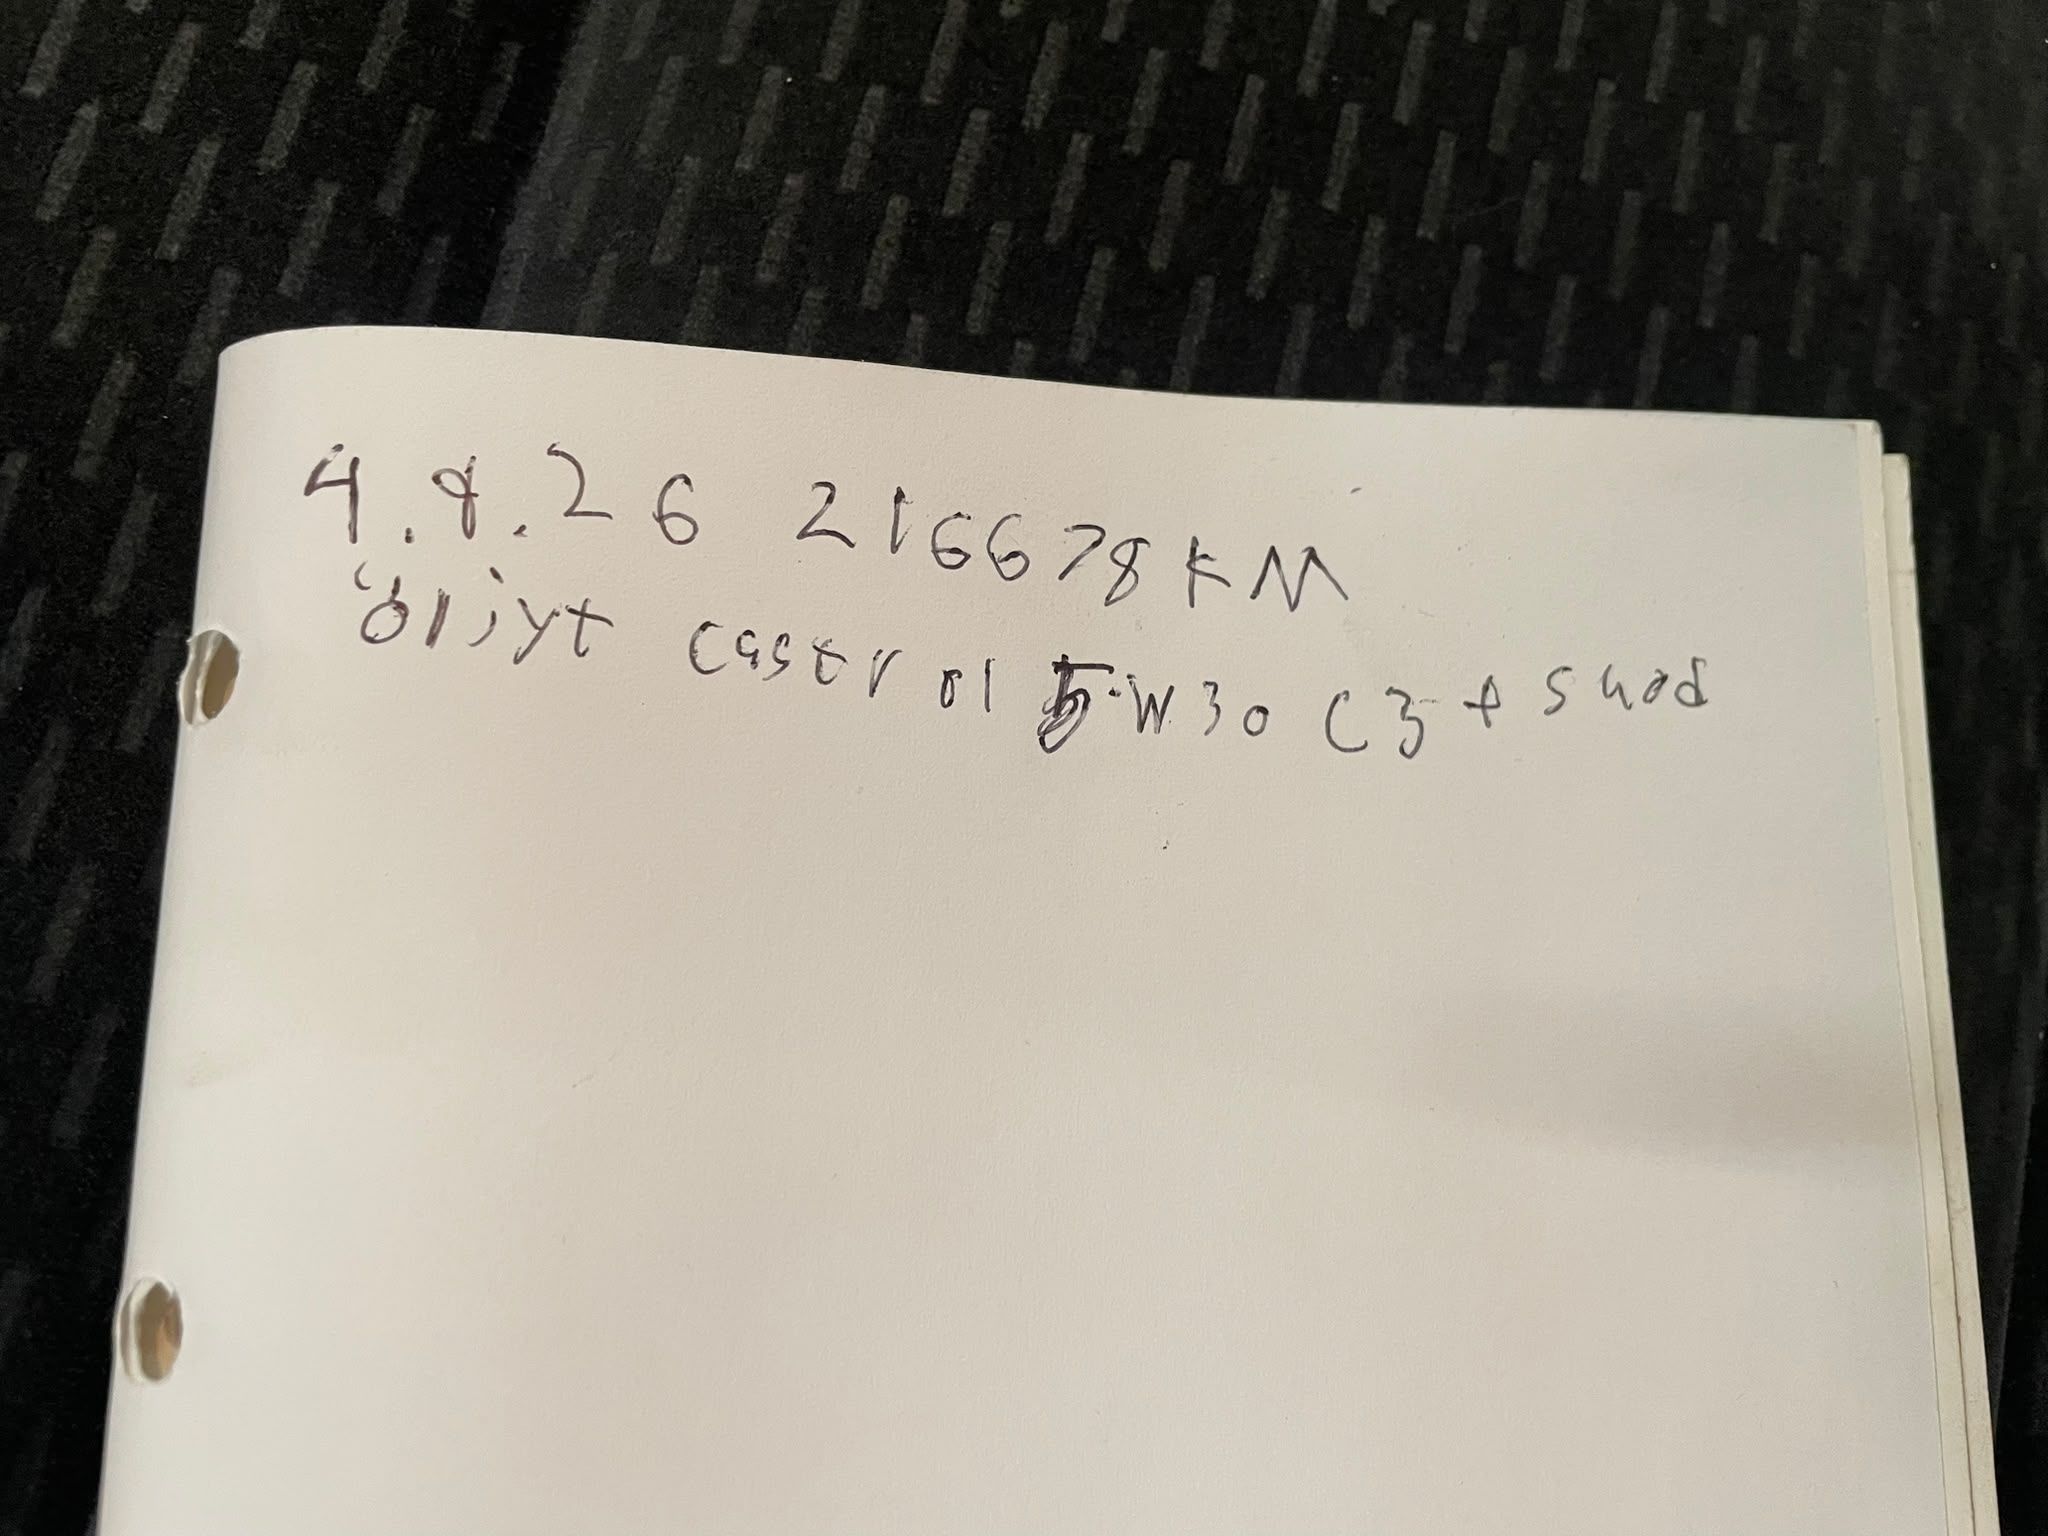 4.8.26 216678KM
öljyt castrol 5W30 C3 + suod